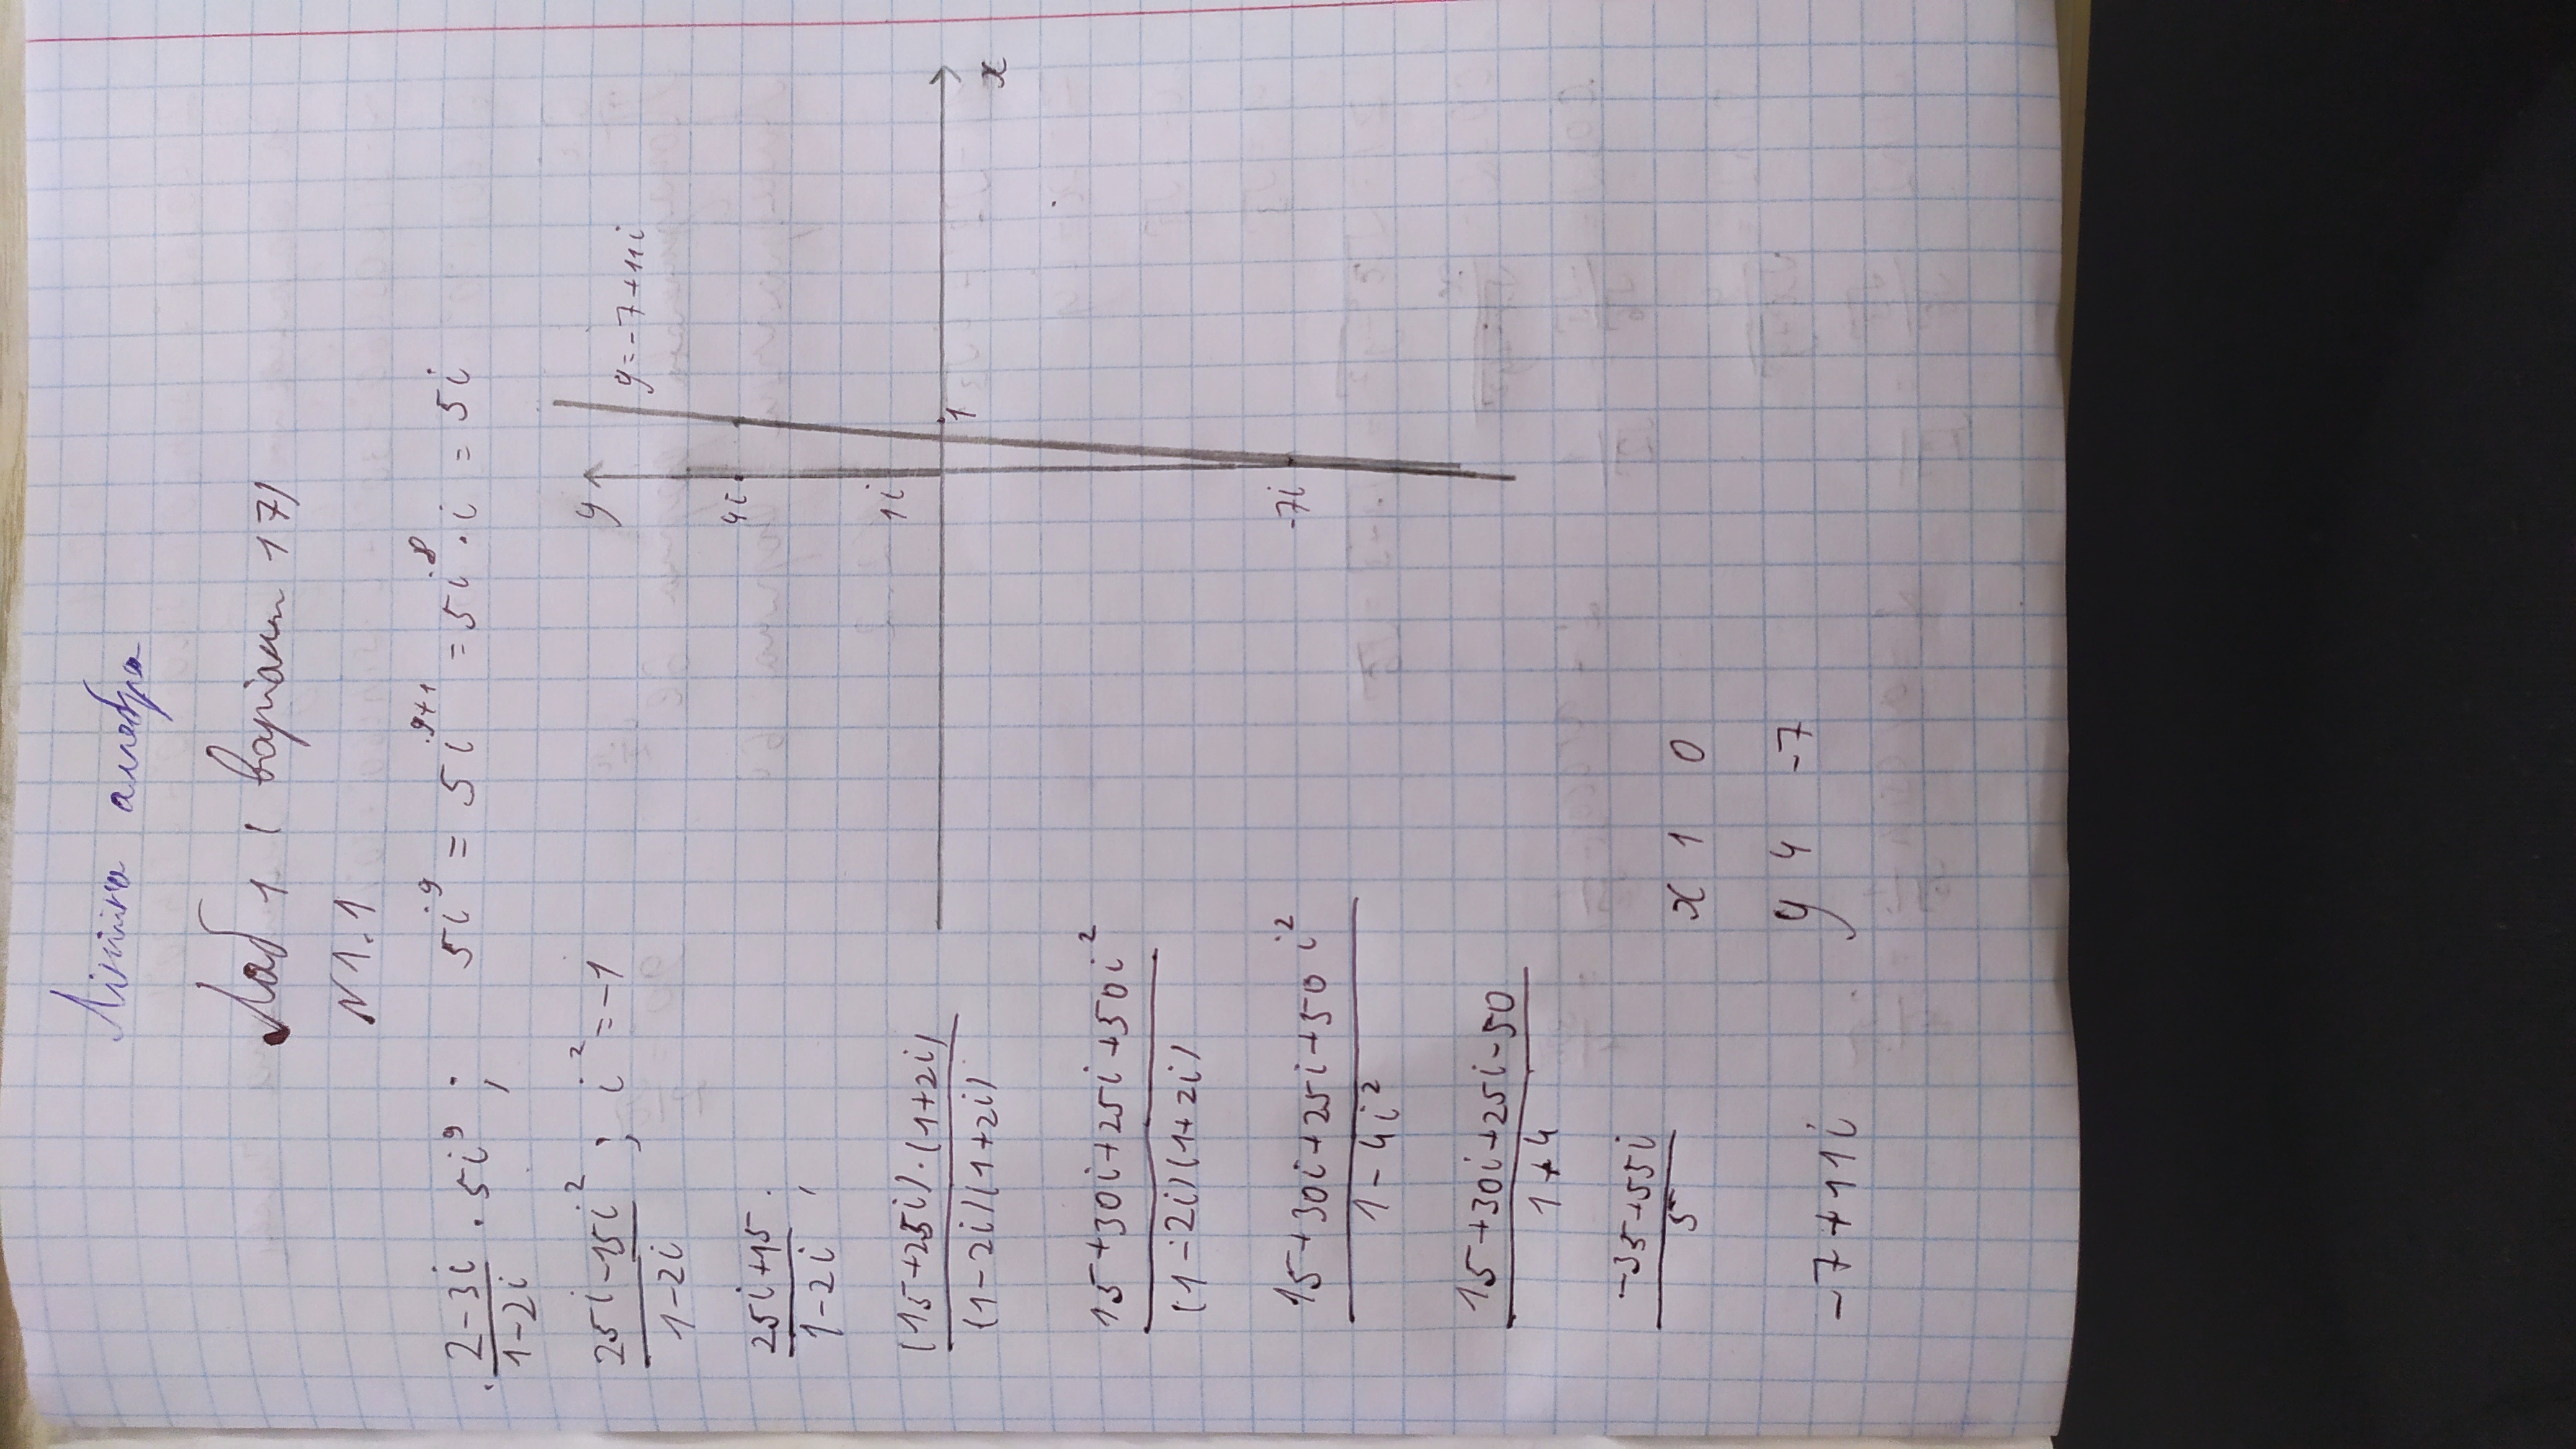 Лінійна алгебра
Лаб 1 (варіант 17)
№1.1
2-3i / 1-2i · 5i⁹ ; 5i⁹ = 5i⁹⁺¹ = 5i⁸ · i = 5i
25i-15i² / 1-2i ; i² = -1
25i+15 / 1-2i ;
(15+25i)·(1+2i) / (1-2i)(1+2i)
15+30i+25i+50i² / (1-2i)(1+2i)
15+30i+25i+50i² / 1-4i²
15+30i+25i-50 / 1+4
-35+55i / 5
-7+11i
x 1 0
y 4 -7
y
y=-7+11i
4i
1i
1
x
-7i